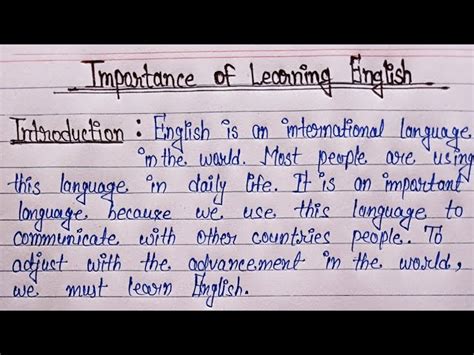 Importance of Learning English
Introduction : English is an international language
in the world. Most people are using
this language in daily life. It is an important
language because we use this language to
communicate with other countries people. To
adjust with the advancement in the world,
we must learn English.